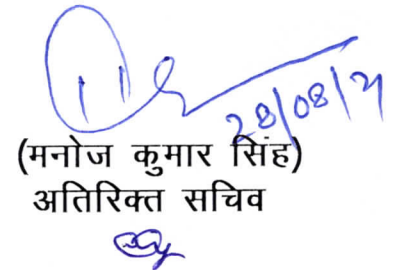 28/08/21
(मनोज कुमार सिंह)
अतिरिक्त सचिव